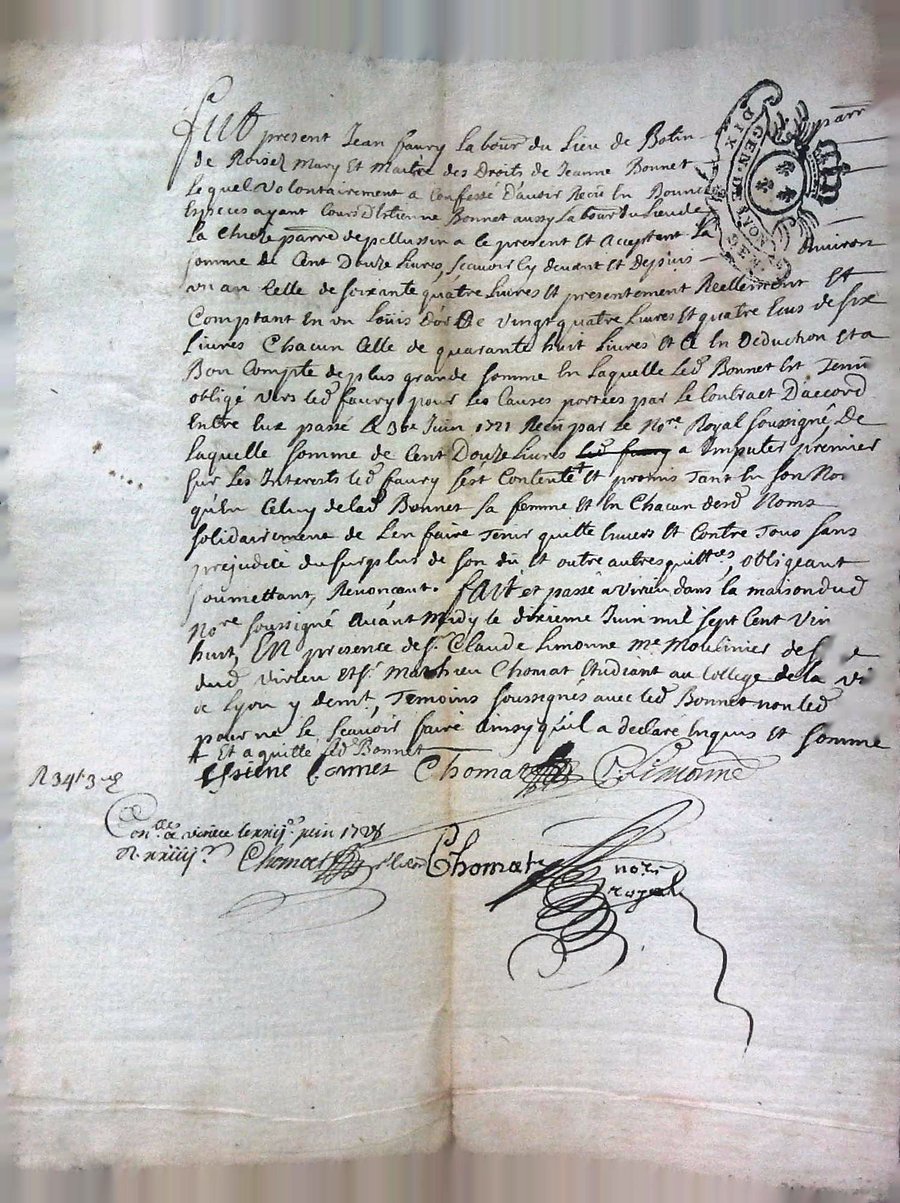 Fut present Jean faury Labour. du Lieu de Botin parr.
de Roisey Mary Et Maitre des Droits de Jeanne Bonnet
Lequel Volontairement a Confessé D'avoir Receu En Bonnes
Especes ayant Cours D'Estienne Bonnet aussy Labour. du Lieu de
La Chieze parre de pellussin a ce present Et Acceptant La
somme de Cent Douze Livres, scauoir Cy devant Et depuis environ
vn an Celle de soixante quatre Livres Et presentement Reellement Et
Comptant En vn Loüis D'or De vingt quatre Livres Et quatre Ecus de six
Livres Chacun Celle de quarante huit Livres Et Ce En Deduction Et a
Bon Compte de plus grande somme En Laquelle Led. Bonnet Est Tenu
obligé vers led. faury pour Les Causes portées par Le Contract D'accord
Entre Eux passé Le 3 Juin 1721 Receu par Le Nore. Royal soussigné, De
Laquelle somme de Cent Douze Livres led. faury a Imputer premier
sur Les Interests led. faury s'est Contenté + Et promis Tant En son No
qu'en Celuy de lad. Bonnet sa femme Et En Chacun desd. Noms
solidairement de L'en faire Tenir quitte Envers Et Contre Tous sans
prejudice du surplus de son dü et outre autres quittces, obligeant
soumettant, Renonçant. FAit et passé a virieu dans la maison dud
Nore soussigné Avant Midy le dixieme Juin mil sept Cent Vin
huit, EN presence de sr. Claude Limonne me. Moulinier de s
dud. virieu Et sr. Matthieu Chomat Etudiant au College de la vi
de Lyon y demt., Temoins soussignes avec led. Bonnet non led
pour ne le scauoir faire ainsy qu'il a declaré Enquis et somme
+ Et a quitté led. Bonnet
Estiene bonnet Chomat CLimonne
R 34s 3d
Conlle a virieu le xiij. juin 1728
R. xxiiij s. Chomat Chomat
nore
royal
DIX
GEN. DE LYON